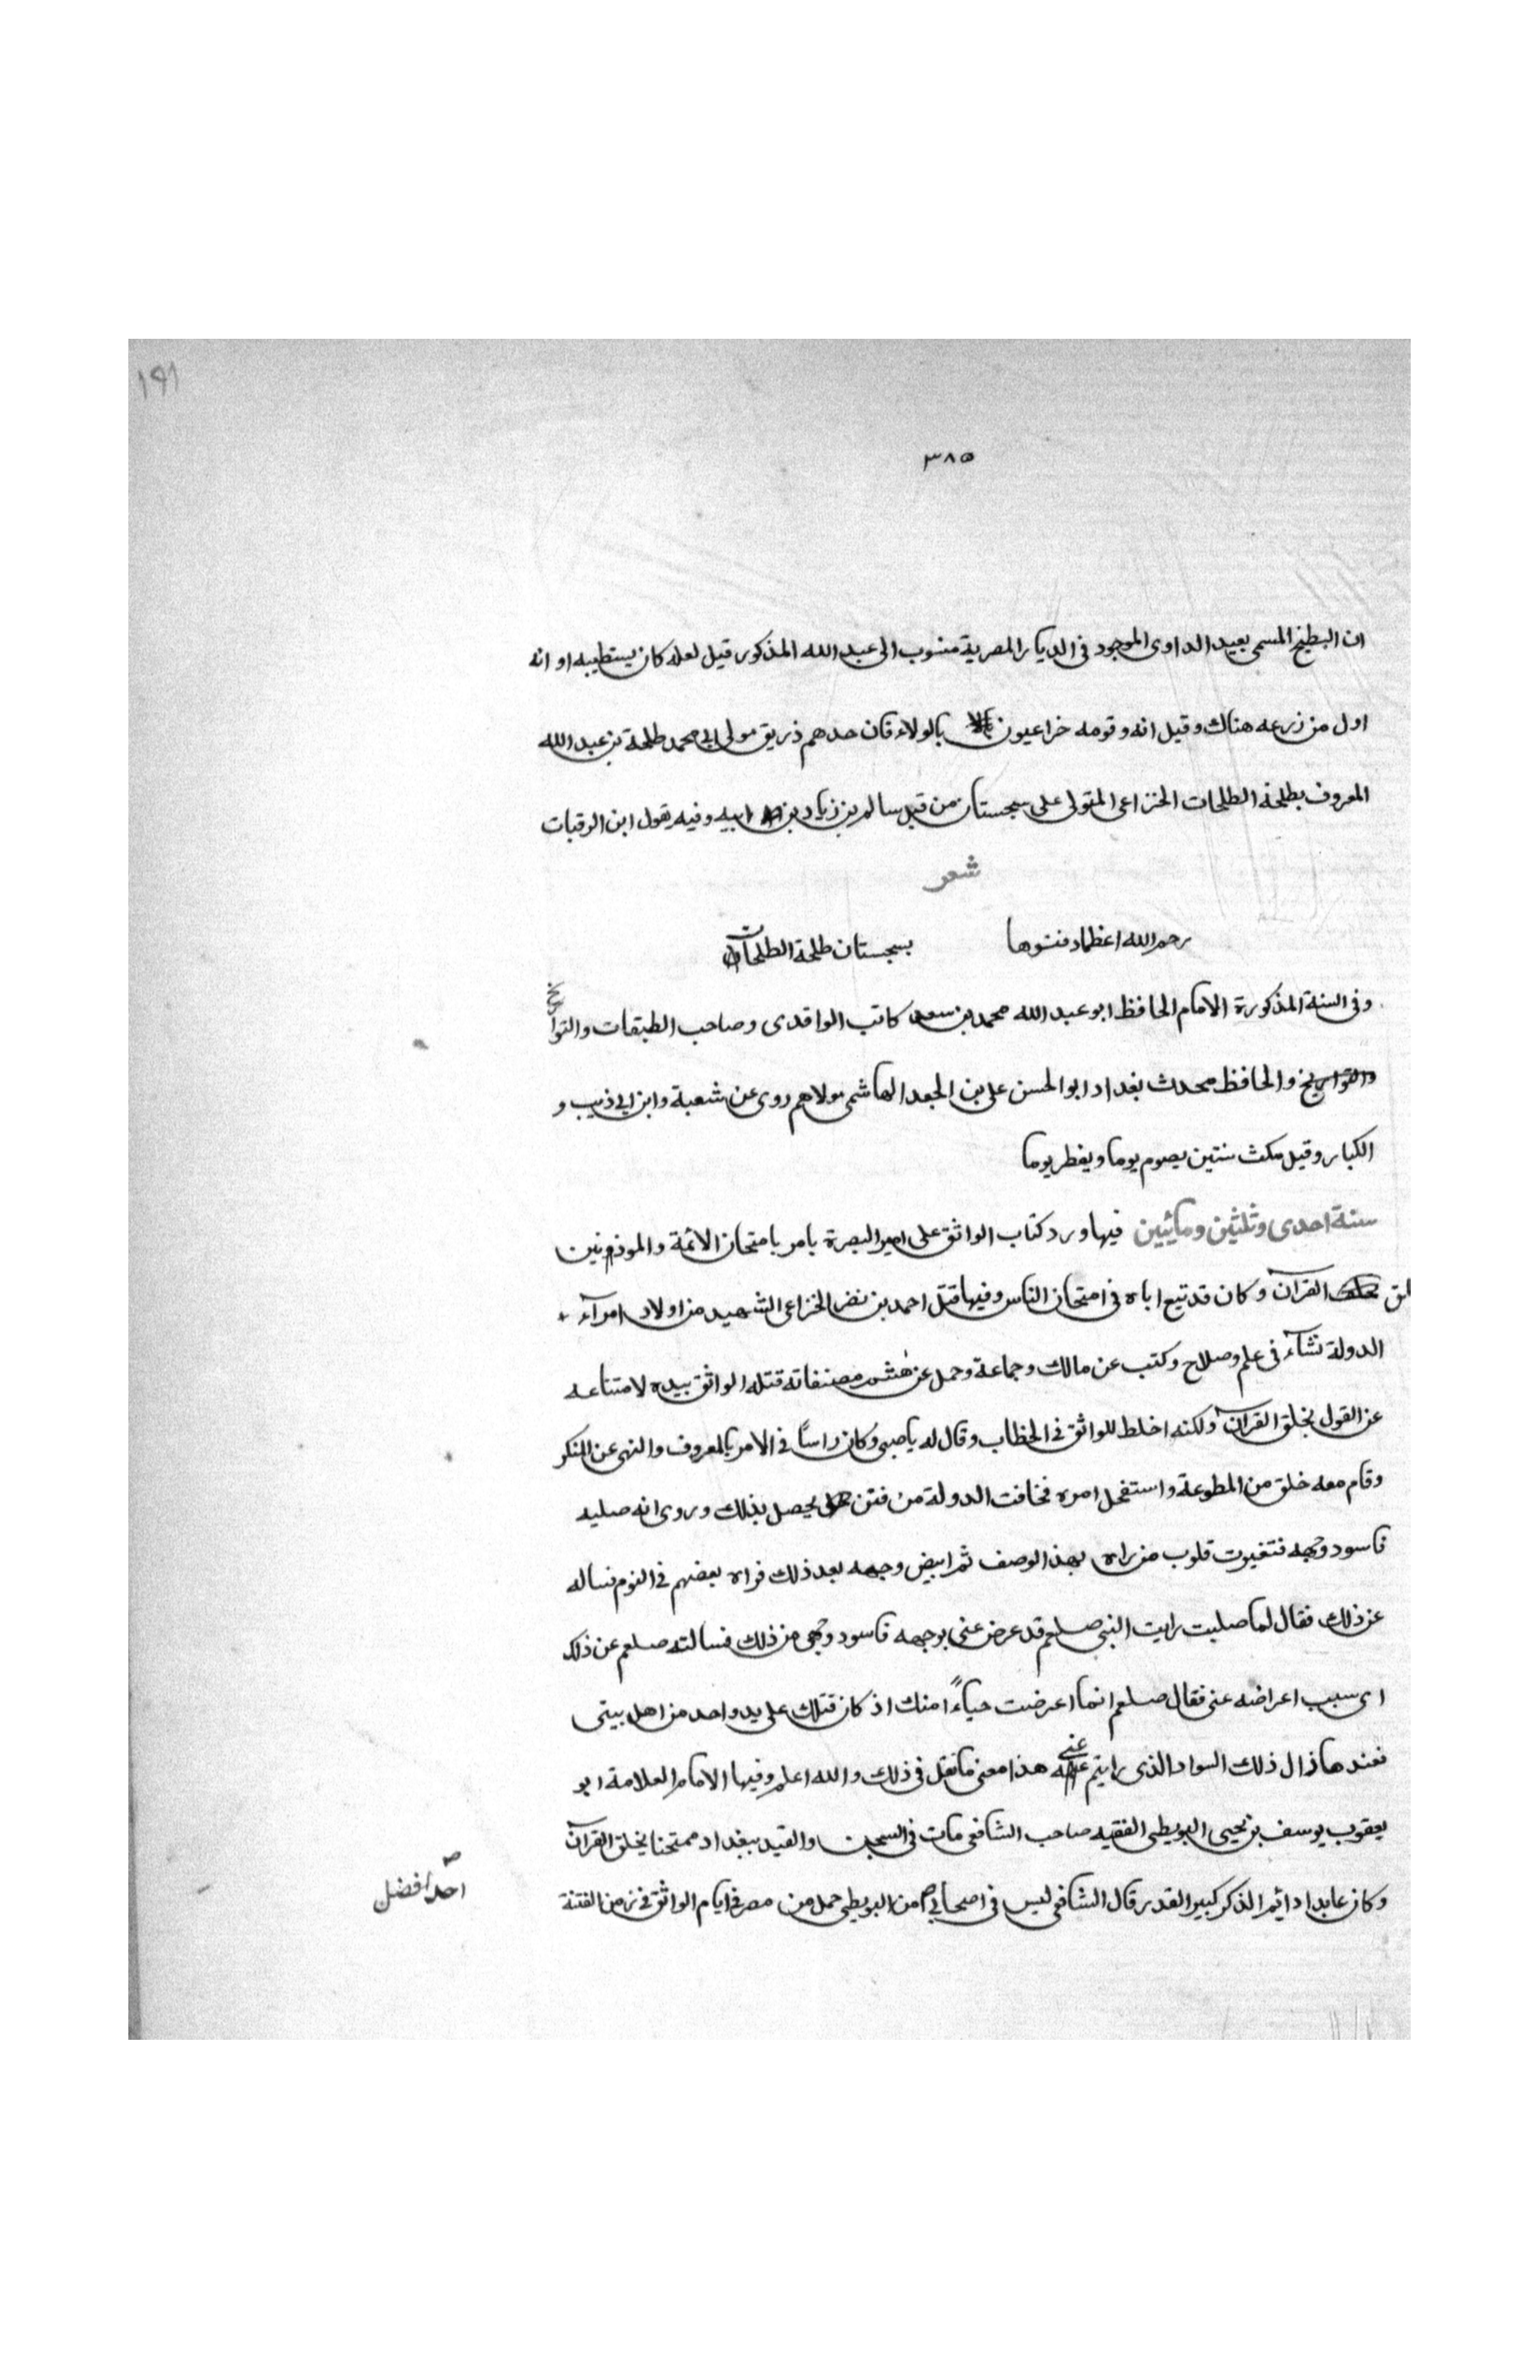 ١٩١
٣٨٥
ان البطيخ المسمى بعبيد الداوى الموجود فى الديار المصرية منسوب الى عبد الله المذكور قيل لعله كان يستطيبه او انه
اول من زرعه هناك وقيل انه وقومه خزاعيون بالولاء فان جدهم زريق مولى ابى محمد طلحة بن عبد الله
المعروف بطلحة الطلحات الخزاعى المتولى على سجستان من قبل سالم بن زياد بن ابيه وفيه يقول ابن الرقيات
شعر
رحم الله اعظما دفنوها بسجستان طلحة الطلحات
وفى السنة المذكورة الامام الحافظ ابو عبد الله محمد بن سعد كاتب الواقدى وصاحب الطبقات والتواريخ
والتواريخ والحافظ محدث بغداد ابو الحسن على بن الجعد الهاشمى مولاهم روى عن شعبة وابن ابى ذيب و
الكبار وقيل مكث ستين يصوم يوما ويفطر يوما
سنة احدى وثلثين ومأيتين فيها ورد كتاب الواثق على امير البصرة يامر بامتحان الائمة والموذنين
القرآن وكان قد تبع اباه فى امتحان الناس وفيها قتل احمد بن نصر الخزاعى الشهيد من اولاد امرآء
الدولة نشاء فى علم وصلاح وكتب عن مالك وجماعة وحمل عن هشيم مصنفاته قتله الواثق بيده لامتناعه
عن القول بخلق القرآن ولكنه اخلط للواثق فى الخطاب وقال له ياصبى وكان راسًا فى الامر بالمعروف والنهى عن المنكر
وقام معه خلق من المطوعة واستفحل امره فخافت الدولة من فتن يحصل بذلك وروى انه صلبه
فاسود وجهه فتغيرت قلوب من راه بهذ الوصف ثم ابيض وجهه بعد ذلك فراه بعضهم فى النوم فساله
عن ذلك فقال لما صلبت رايت النبى صلعم قد عرض عنى بوجهه فاسود وجهى من ذلك فسالته صلعم عن ذلك
اى سبب اعراضه عنى فقال صلعم انما اعرضت حياءً امنك اذ كان قتلك على يد واحد من اهل بيتى
فعندها زال ذلك السواد الذى رايتم عنى هذا معنى ما نقل فى ذلك والله اعلم وفيها الامام العلامة ابو
يعقوب يوسف بن يحيى البويطى الفقيه صاحب الشافعى مات فى السجن والقيد ببغداد ممتحنا بخلق القرآن
وكان عابدا دائم الذكر كبير القدر قال الشافعى ليس فى اصحابى من البويطى حمل من مصر فى ايام الواثق فى زمن الفتنة
احد افضل